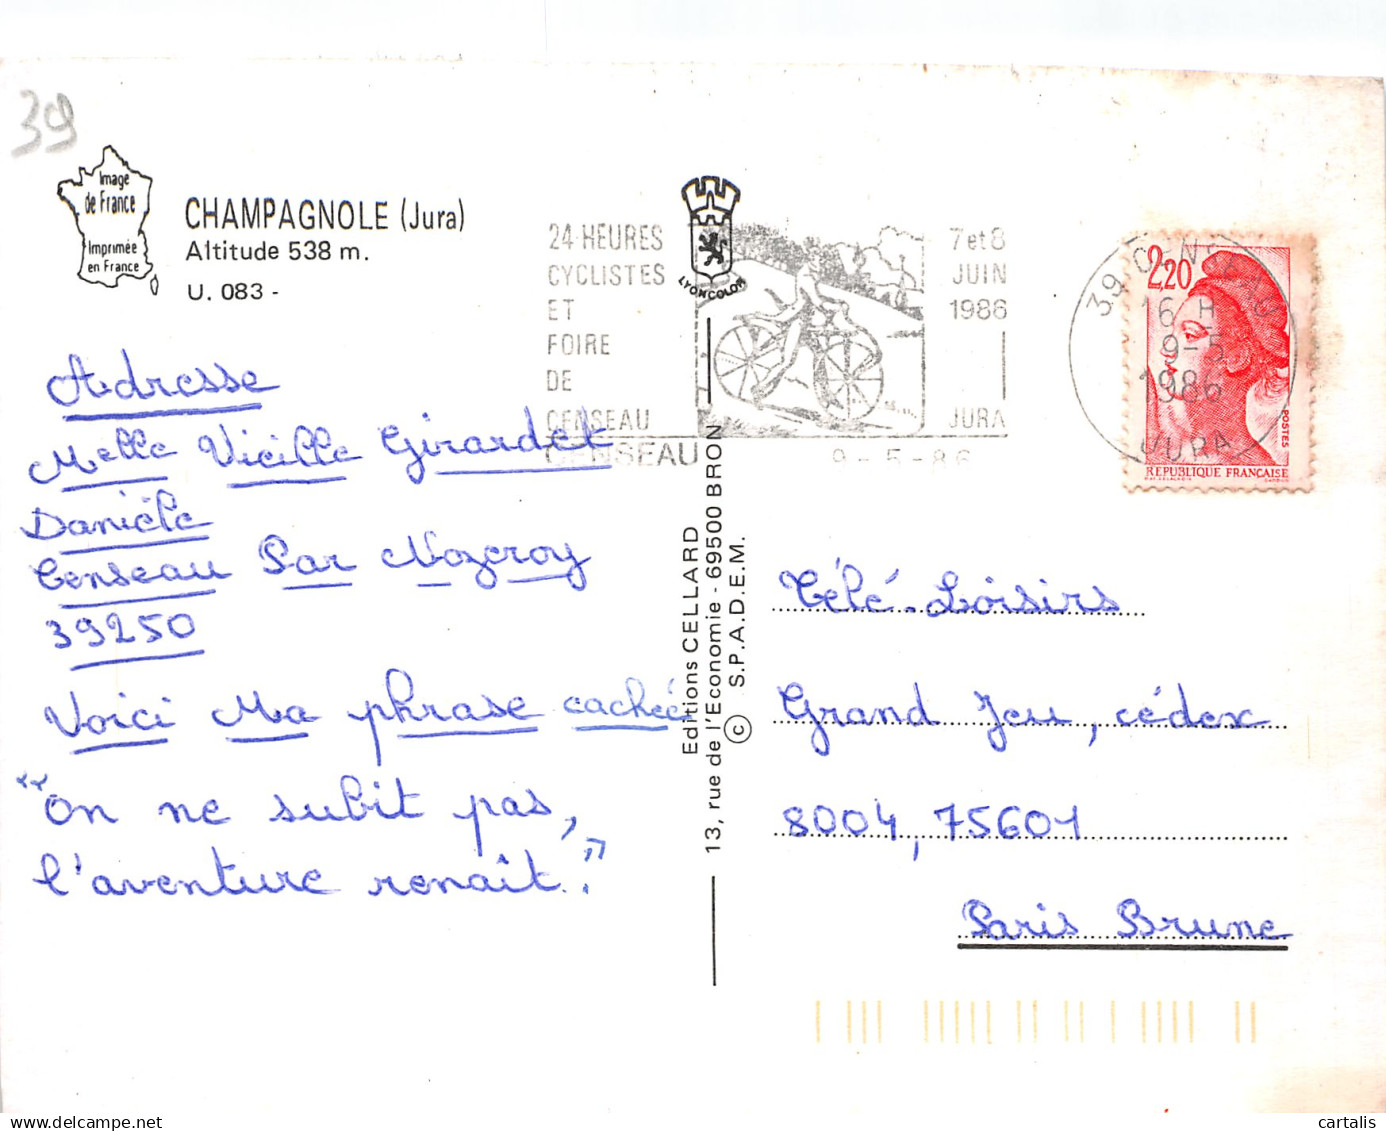 39
Image
de France
Imprimée
en France
CHAMPAGNOLE (Jura)
Altitude 538 m.
U. 083 -
24 HEURES
CYCLISTES
ET
FOIRE
DE
CENSEAU
CENSEAU
9-5-86
LYONCOLOR
7 et 8
JUIN
1986
JURA
39 CENSEAU
16 H
9-5
1986
JURA
2,20
POSTES
REPUBLIQUE FRANÇAISE
Adresse
Melle Vieille Girardet
Danièle
Censeau Par Nozeroy
39250
Voici Ma phrase cachée
"On ne subit pas,
l'aventure renaît."
Editions CELLARD
13, rue de l'Economie - 69500 BRON
© S.P.A.D.E.M.
Télé-Loisirs
Grand Jeu, cédex
8004, 75601
Paris Brune
cartalis